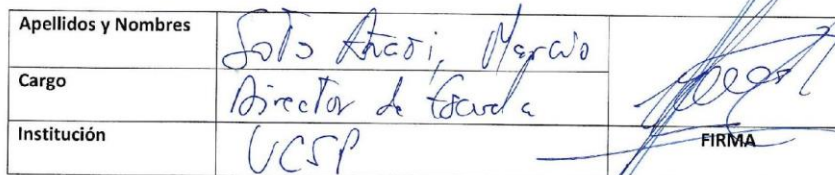 Apellidos y Nombres Soto
Cargo Director de Escuela
Institución UCSP
FIRMA